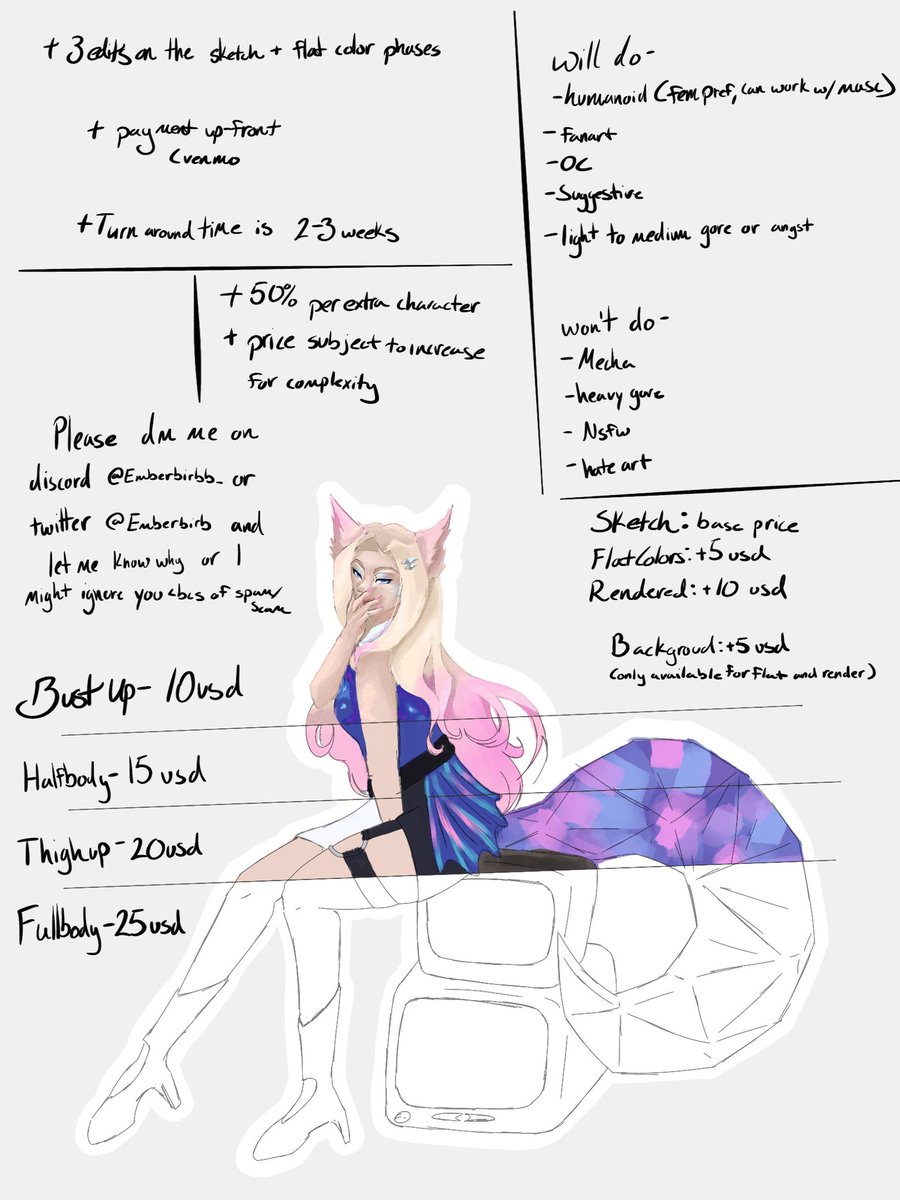 + 3 edits on the sketch + flat color phases
+ payment up-front
(venmo
+ Turn around time is 2-3 weeks
will do-
- humanoid (fem pref, can work w/ masc)
- fanart
- OC
- Suggestive
- light to medium gore or angst
won't do-
- Mecha
- heavy gore
- Nsfw
- hate art
+ 50% per extra character
+ price subject to increase
for complexity
Please dm me on
discord @Emberbirbb_ or
twitter @Emberbirb and
let me know why or I
might ignore you cbcs of spam/
scam
Sketch: base price
Flat Colors: +5 usd
Rendered: +10 usd
Backgroud: +5 usd
(only available for flat and render)
Bust up- 10 usd
Halfbody- 15 usd
Thighup- 20usd
Fullbody- 25 usd